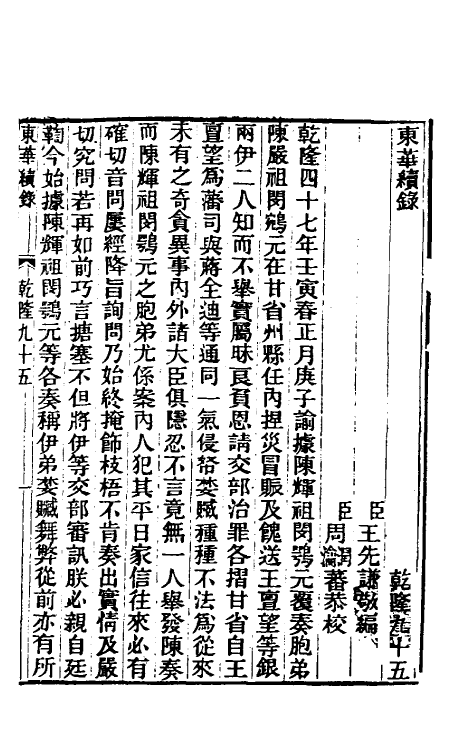 東華續錄
乾隆九十五
臣王先謙敬編
臣周潤蕃周瀹蕃恭校
乾隆四十七年壬寅春正月庚子諭據陳輝祖閔鶚元覆奏胞弟
陳嚴祖閔鵷元在甘省州縣任內捏災冒賑及餽送王亶望等銀
兩伊二人知而不舉實屬昧良負恩請交部治罪各摺甘省自王
亶望為藩司與蔣全迪等通同一氣侵帑婪贓種種不法為從來
未有之奇貪異事內外諸大臣俱隱忍不言竟無一人舉發陳奏
而陳輝祖閔鶚元之胞弟尤係案內人犯其平日家信往來必有
確切音問屢經降旨詢問乃始終掩飾枝梧不肯奏出實情及嚴
切究問若再如前巧言搪塞不但將伊等交部審訊朕必親自廷
鞫今始據陳輝祖閔鶚元等各奏稱伊弟婪贓舞弊從前亦有所
東華續錄 乾隆九十五 一